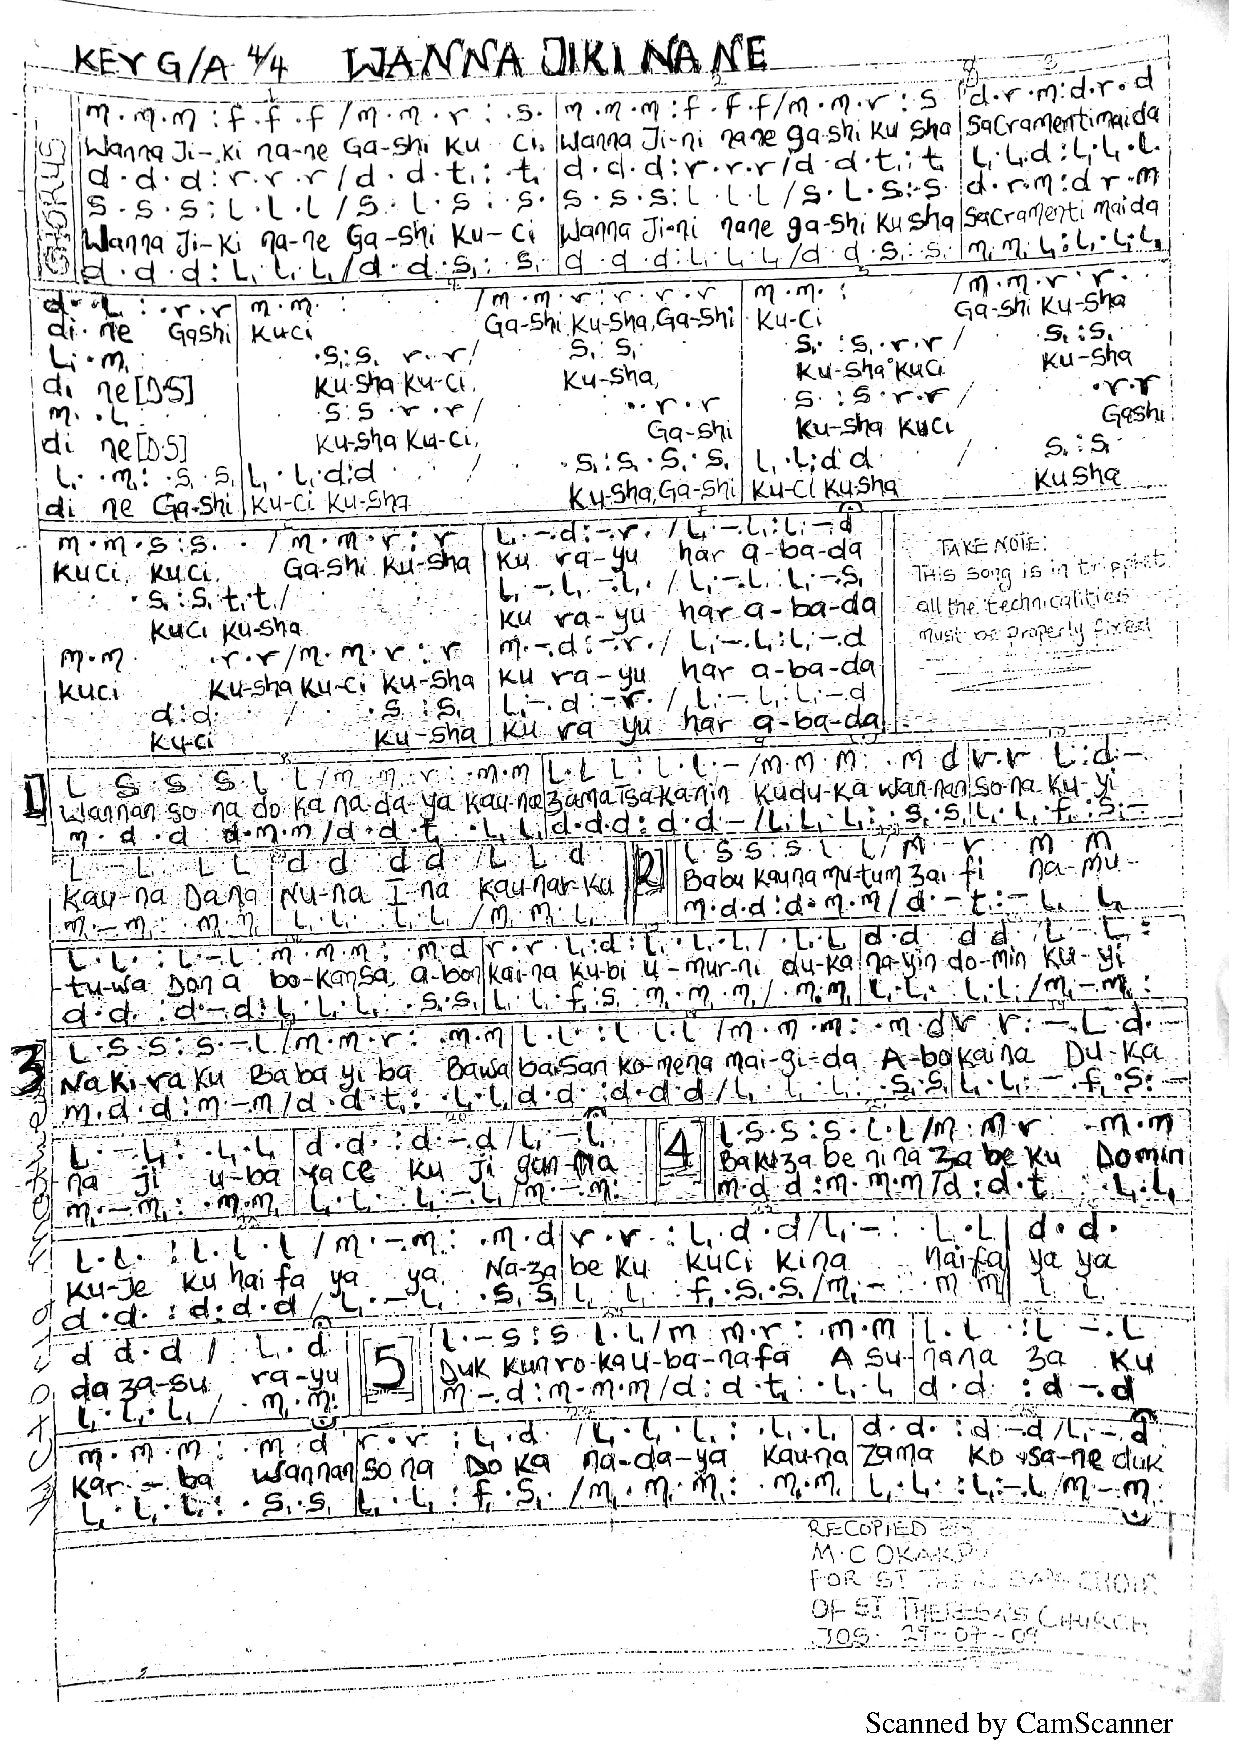 KEY G/A 4/4 WANNA JIKI NANE
CHORUS
m·m·m:f·f·f/m·m·r:s· m·m·m:f·f·f/m·m·r:s d·r·m:d·r·d
Wanna Ji-ki na-ne Ga-shi ku ci, Wanna Ji-ni nane ga-shi ku sha Sacramenti maida
d·d·d:r·r·r/d·d·t₁:t₁ d·d·d:r·r·r/d·d·t₁:t₁ L₁L₁d:L₁·L₁·L₁
s·s·s:L·L·L/s·L·s:s s·s·s:L·L·L/s·L·s:s d·r·m:d·r·m
Wanna Ji-ki na-ne Ga-shi ku-ci Wanna Ji-ni nane ga-shi ku sha Sacramenti maida
d·d·d:L₁L₁L₁/d·d·s₁:s₁ d·d·d:L₁L₁L₁/d·d·s₁:s₁ m₁m₁L₁:L₁·L₁·L₁
d··L₁:·r·r m·m· : /m·m·r:r·r·r m·m·: /m·m·r:r·
di· ne Gashi kuci Ga-shi Ku-sha, Ga-shi Ku-ci Ga-shi Ku-sha
L₁··m₁ ·s₁:s₁ r·r/ s₁:s₁ s₁·:s₁·r·r/ s₁:s₁
di ne [D·S] Ku-sha Ku-ci, Ku-sha, Ku-sha Kuci Ku-sha
m··L ·s:s·r·r/ ··r·r s·:s·r·r/ ··r·r
di ne [D·S] Ku-sha Ku-ci, Ga-shi Ku-sha Kuci Gashi
L₁·m₁:·s₁s₁ L₁·L₁d:d ·s₁:s₁·s₁·s₁ L₁·L₁:d d s₁:s₁
di ne Ga-shi Ku-ci Ku-sha Ku-sha, Ga-shi Ku-ci Ku-sha Ku sha
m·m·s:s· /m·m·r:r L₁-·d:-·r·/L₁·-·L₁:L₁·-·d
Kuci, Kuci, Ga-shi Ku-sha Ku ra-yu har a-ba-da
·s₁:s₁t₁t₁/ L₁-·L₁-·L₁/L₁·-·L₁:L₁·-·s₁
Kuci Ku-sha Ku ra-yu har a-ba-da
m·m ·r·r/m·m·r:r m·-·d:-·r·/L₁·-·L₁:L₁·-·d
Kuci Ku-sha Ku-ci Ku-sha Ku ra-yu har a-ba-da
d:d / ·s₁:s₁ L₁·-·d:-·r/L₁·-·L₁:L₁·-·d
Ku-ci Ku-sha Ku ra yu har a-ba-da
TAKE NOTE:
THIS song is in tripplet
all the technicalities
must be properly fixed
1 L s s s L L/m·m·r:·m·m L·L·L:L·L·-/m·m·m:·m d r·r L₁:d:-
Wannan so na do ka na-da-ya kau-na zama tsakanin kudu-ka wan-nan so-na ku-yi
m·d·d d·m·m/d·d·t₁·L₁L₁ d·d·d:d·d·-/L₁L₁·L₁:·s₁·s₁ L₁·L₁·f₁:s₁:-
L-L L L d·d d d/L₁L₁d [2] L s s:s L L/m-r m m
Kau-na Dana Nu-na I-na kau-nar-ku Babu kauna mutum zai fi na-mu-
m₁-m₁: m₁·m₁ L₁L₁ L₁L₁/m₁m₁L₁ m·d·d:d·m·m/d·-t₁:-L₁ L₁
L·L·:L-L m·m·m: m d r·r·L₁:d:L₁·L₁·L₁/·L₁·L₁ d·d d d/L₁-L₁:
tu-wa Dona bo-kansa, a-bon kai-na ku-bi u-mur-ni du-ka na-yin do-min ku-yi
d·d·:d-d:L₁·L₁·L₁·s₁s₁ L₁L₁f₁:s₁ m₁·m₁·m₁/m₁m₁ L₁·L₁·L₁·L₁/m₁-m₁:
3 L·s·s:s·-L/m·m·r:·m·m L·L·:L L L/m·m·m:·m·d r r:-·L₁d·-
Na ki ra ku Ba ba yi ba Bawa bai san ko-mena mai-gi-da A-bo kaina Du-ka
m·d·d:m·-m/d·d·t₁:·L₁·L₁ d·d:d·d·d/L₁L₁L₁·s₁·s₁ L₁·L₁:-·f₁·s₁:-
L₁·-·L₁:·L₁·L₁ d·d·:d·-·d/L₁·-L₁ [4] L·s·s:s·L·L/m·m·r ·m·m
na ji u-ba ya ce ku ji gun-ma Ba ku za be ni na za be ku Domin
m₁-·m₁:·m₁m₁ L₁·L₁·:L₁-·L₁/m₁·-·m₁: m·d·d:m·m·m/d:d·t₁:L₁·L₁
L·L·:L·L·L/m·-·m:·m·d r·r·:L₁·d·d/L₁·-: L₁·L₁ d·d·
Ku-je ku hai fa ya ya Na-za be ku kuci kina haifa ya ya
d·d·:d·d·d/L₁·-L₁·s₁·s₁ L₁ L₁ f₁·s₁·s₁/m₁·- m₁m₁ L₁ L₁
d d·d/L₁·d [5] L·-s:s L·L/m m·r:·m·m L·L·:L-·L
da za-su ra-yu Duk kunro-kau-ba-na fa A su-nana za ku
L₁·L₁·L₁/·m₁·m₁: m-·d:m·m·m/d:d·t₁:·L₁·L₁ d·d·:d-·d
m·m·m:·m·d r·r·:L₁·d/L₁·L₁·L₁:·L₁·L₁ d·d·:d·-d/L₁·-d
Kar-ba Wannan so na Do ka na-da-ya kau-na zama ko sa-ne duk
L₁·L₁·L₁:·s₁·s₁ L₁·L₁:f₁·s₁/m₁·m₁·m₁:·m₁·m₁ L₁·L₁·:L₁:-L₁/m₁-·m₁:
RECOPIED BY
M·C OKAKPU
FOR ST THERESA'S CHOIR
OF ST THERESA'S CHURCH
JOS· 29-07-09
Scanned by CamScanner